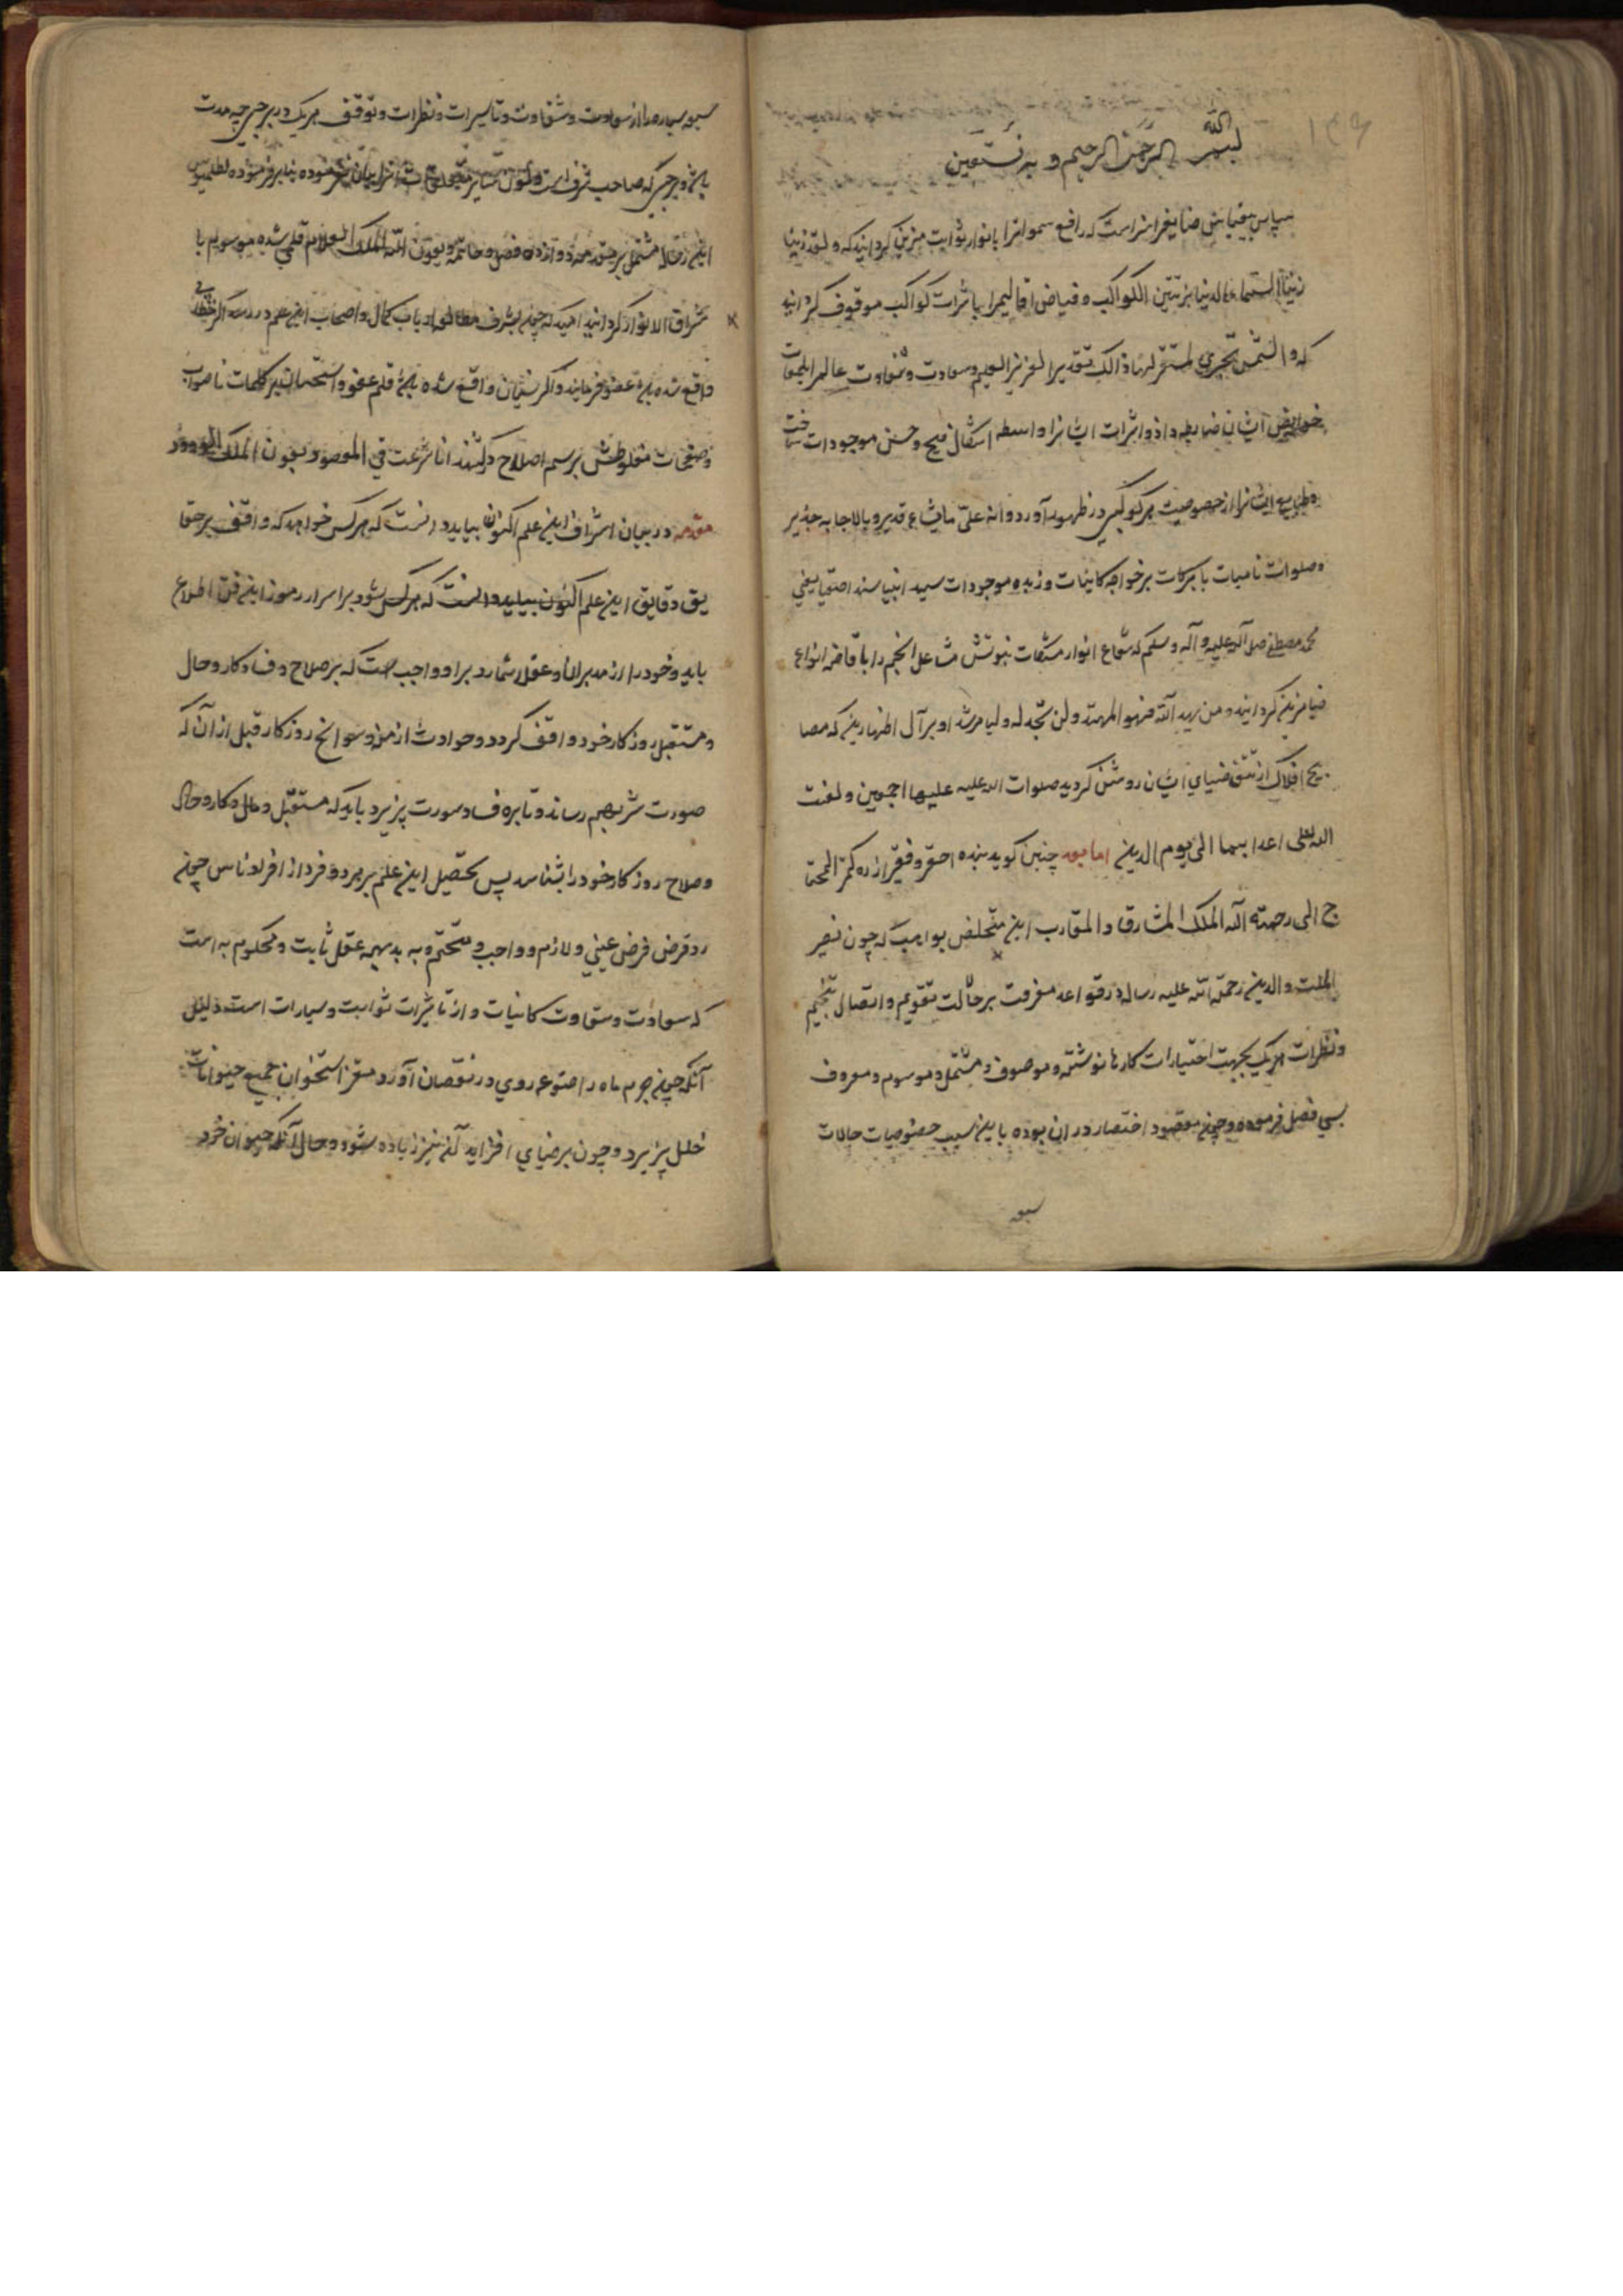 بسم الله الرحمن الرحیم و به نستعین
سپاس بیقیاس صانعی را سزاست که رافع سمواترا بانوار ثوابت مزین کردانید که و لقد زینا
السماء الدنیا بزینتن الکواکب و فیاض اقالیمرا باثرات کواکب موقوف کردانید
که و الشمس تجری لمستقر لها ذالک تقدیر العزیز العلیم و سعادت و شقاوت عالمرا
خواص ایشان ضابطه داد و اثرات ایشانرا واسطه اشکال قبیح و حسن موجودات ساخت
و طبایع ایشانرا از خصوصیت هر کوکبی در ظهور آورد و انه علی مایشاء قدیر و بالاجابه جدیر
و صلوات نامیات با برکات بر خواجه کاینات و زبده موجودات سید انبیا سند اصفیا یعنی
محمد مصطفی صلی الله علیه و آله و سلم که شعاع انوار مشکات نبوتش مشاعل انجم را با قاضه انواع
ضیا مزین کردانید و من یهد الله فهو المهتد و لن تجد له ولیا مرشدا و بر آل اطهارین که مصا
بیح افلاک از ضیای ایشان روشن کردید صلوات الله علیه علیها اجمعین و لعنت
الله علی اعدا یهما الی یوم الدین اما بعد چنین کوید بنده احقر و فقیر از ذره کمتر المحتا
ج الی رحمته الله الملک المشارق و المغارب این متخلص بو که چون نصیر
الملت و الدین رحمة الله علیه رساله در قواعد معرفت بر حالت تقویم و اتصال تنجیم
و نظرات هریک بجهت اختیارات کارها نوشته و موصوف و مشتمل و موسوم و معروف
بسی فصل فرموده و چون مقصود اختصار در ان بوده باین سبب خصوصیات حالات
سبعه
سبعه سیاره را از سعادت و شقاوت و تاسیرات و نظرات و توقف هریک در برجی چه مدت
باشد و برجی که صاحب شرف است و بیان نفرموده بنابر فرموده بطلمیوس
این رساله مشتمل بر مقدمه و دوازده فصل و خاتمه و بعون الله الملک العلام قلمی شده موسوم با
شراق الانوار کردانید امید که چون بشرف مطالعه ارباب کمال و اصحاب این علم در رسد اکر خطایی
واقع شده باشد عفو فرمایند و اکر نسیان واقع شده باشد قلم عفو و استحسان بر کلمات ناصواب
و صفحات مغلوطش برسم اصلاح درکشند انا شرعت فی المقصود بعون الملک الودود
مقدمه در بیان اشراف این علم اکنون بباید دانست که هرکس خواهد که واقف بر حقا
یق دقایق این علم اکنون بباید دانست که هرکس شود بر اسرار رموز این فن اطلاع
یابد و خود را از مدبران و عقلا شمارد بر او واجب است که بر صلاح و فساد کار و حال
و مستقبل روزکار خود واقف کردد و حوادث ازمنه و سوانح روزکار قبل از آن که
صورت شر بهم رساند و تابره فساد صورت پزیرد باید که مستقبل و حال و کار و حال
و صلاح روزکار خود را بشناسد پس بتحصیل این علم بر هر فرد از افراد ناس چون
رد قرض فرض عینی و لازم و واجب و متحتم و به بدیهیه عقل ثابت و محکوم به است
که سعادت و شقاوت کاینات و از تاثیرات ثوابت و سیارات است دلیل
آنکه چون جرم ماه را ضوء روی در نقصان آورد مغز استخوان جمیع حیوانات
خلل پزیرد و چون بر ضیای افزاید آن نیز زیاده شود و حال آنکه حیوان خرد